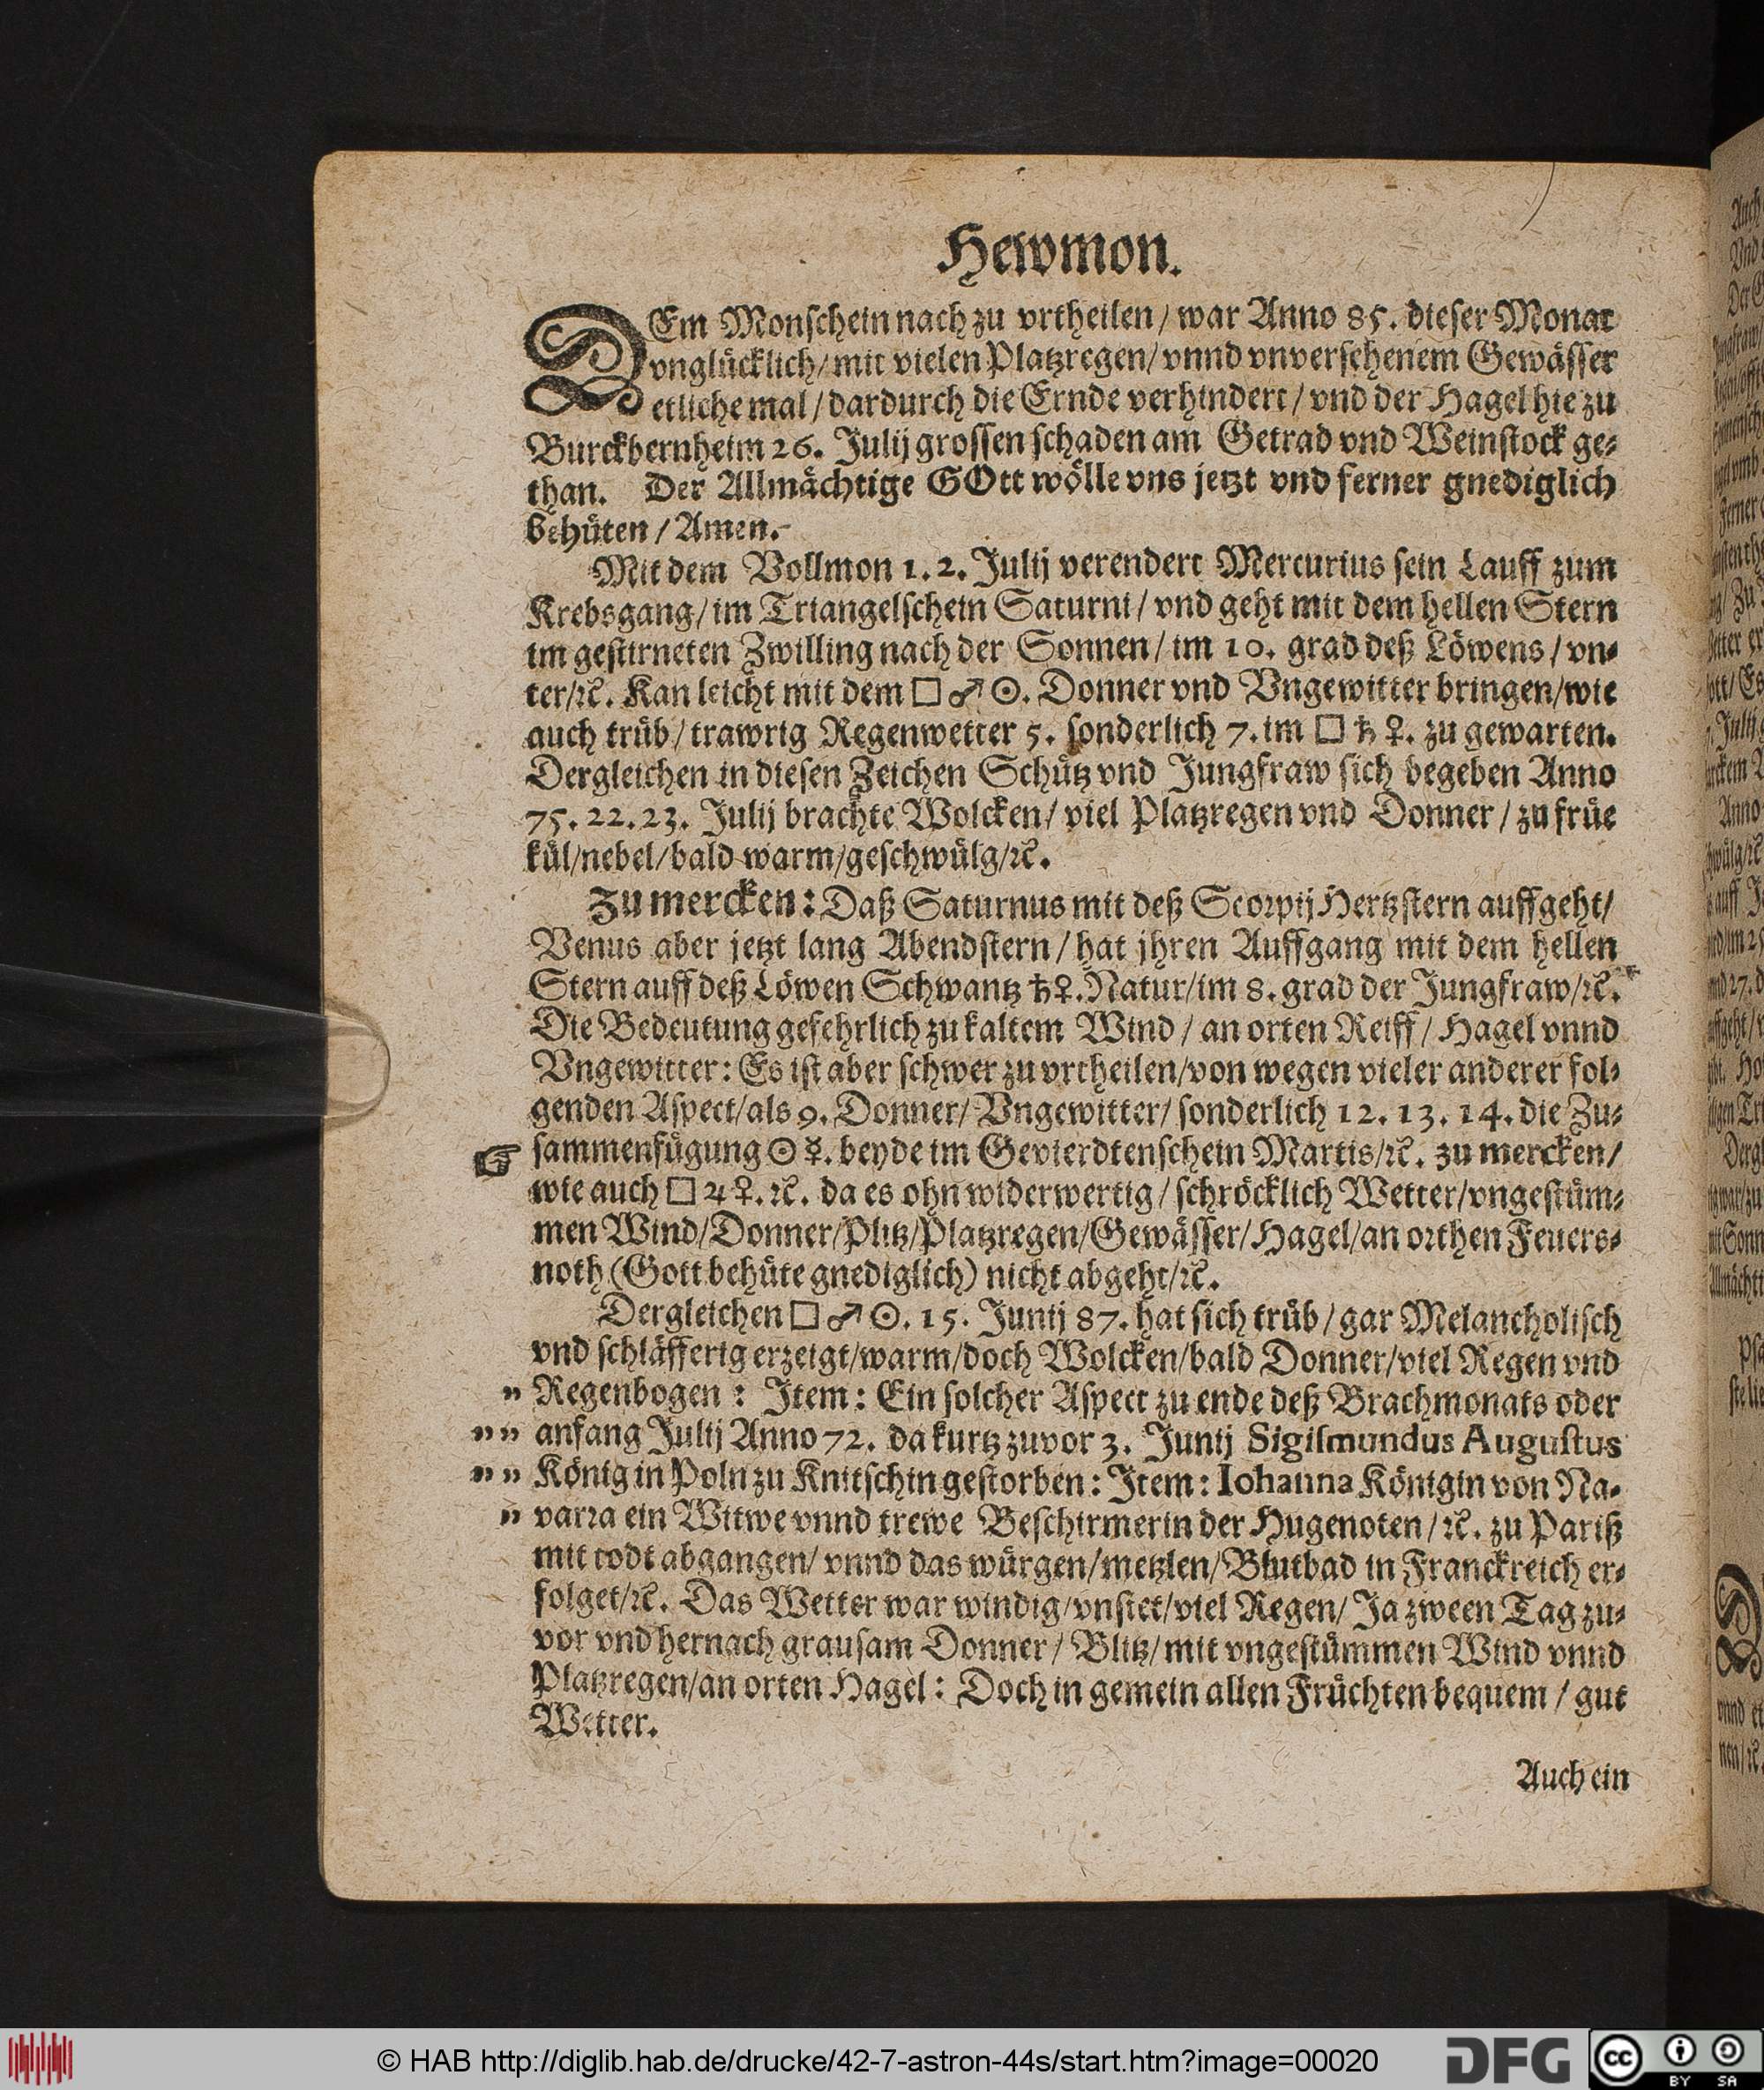 Hewmon.
DEm Monschein nach zu vrtheilen / war Anno 85. dieser Monat
vnglücklich / mit vielen Platzregen / vnnd vnversehenem Gewässer
etliche mal / dardurch die Ernde verhindert / vnd der Hagel hie zu
Burckbernheim 26. Julij grossen schaden am Getrad vnd Weinstock ge-
than. Der Allmächtige GOtt wölle vns jetzt vnd ferner gnediglich
behüten / Amen.
Mit dem Vollmon 1. 2. Julij verendert Mercurius sein Lauff zum
Krebsgang / im Triangelschein Saturni / vnd geht mit dem hellen Stern
im gestirneten Zwilling nach der Sonnen / im 10. grad deß Löwens / vn-
ter / ꝛc. Kan leicht mit dem □ ♂ ☉. Donner vnd Vngewitter bringen / wie
auch trüb / trawrig Regenwetter 5. sonderlich 7. im □ ♄ ♀. zu gewarten.
Dergleichen in diesen Zeichen Schütz vnd Jungfraw sich begeben Anno
75. 22. 23. Julij brachte Wolcken / viel Platzregen vnd Donner / zu früe
kül / nebel / bald warm / geschwülg / ꝛc.
Zu mercken: Daß Saturnus mit deß Scorpij Hertzstern auffgeht /
Venus aber jetzt lang Abendstern / hat jhren Auffgang mit dem hellen
Stern auff deß Löwen Schwantz ♄ ♀. Natur / im 8. grad der Jungfraw / ꝛc.
Die Bedeutung gefehrlich zu kaltem Wind / an orten Reiff / Hagel vnnd
Vngewitter: Es ist aber schwer zu vrtheilen / von wegen vieler anderer fol-
genden Aspect / als 9. Donner / Vngewitter / sonderlich 12. 13. 14. die Zu-
☞ sammenfügung ☉ ☿. beyde im Gevierdtenschein Martis / ꝛc. zu mercken /
wie auch □ ♃ ♀. ꝛc. da es ohn widerwertig / schröcklich Wetter / vngestüm-
men Wind / Donner / Plitz / Platzregen / Gewässer / Hagel / an orthen Feuers-
noth (Gott behüte gnediglich) nicht abgeht / ꝛc.
Dergleichen □ ♂ ☉. 15. Junij 87. hat sich trüb / gar Melancholisch
vnd schläfferig erzeigt / warm / doch Wolcken / bald Donner / viel Regen vnd
„ Regenbogen: Item: Ein solcher Aspect zu ende deß Brachmonats oder
„ „ anfang Julij Anno 72. da kurtz zuvor 3. Junij Sigismundus Augustus
„ „ König in Poln zu Knitschin gestorben: Item: Iohanna Königin von Na-
„ varra ein Witwe vnnd trewe Beschirmerin der Hugenoten / ꝛc. zu Pariß
mit todt abgangen / vnnd das würgen / metzlen / Blutbad in Franckreich er-
folget / ꝛc. Das Wetter war windig / vnstet / viel Regen / Ja zween Tag zu-
vor vnd hernach grausam Donner / Blitz / mit vngestümmen Wind vnnd
Platzregen / an orten Hagel: Doch in gemein allen Früchten bequem / gut
Wetter.
Auch ein
© HAB http://diglib.hab.de/drucke/42-7-astron-44s/start.htm?image=00020
DFG
cc BY SA